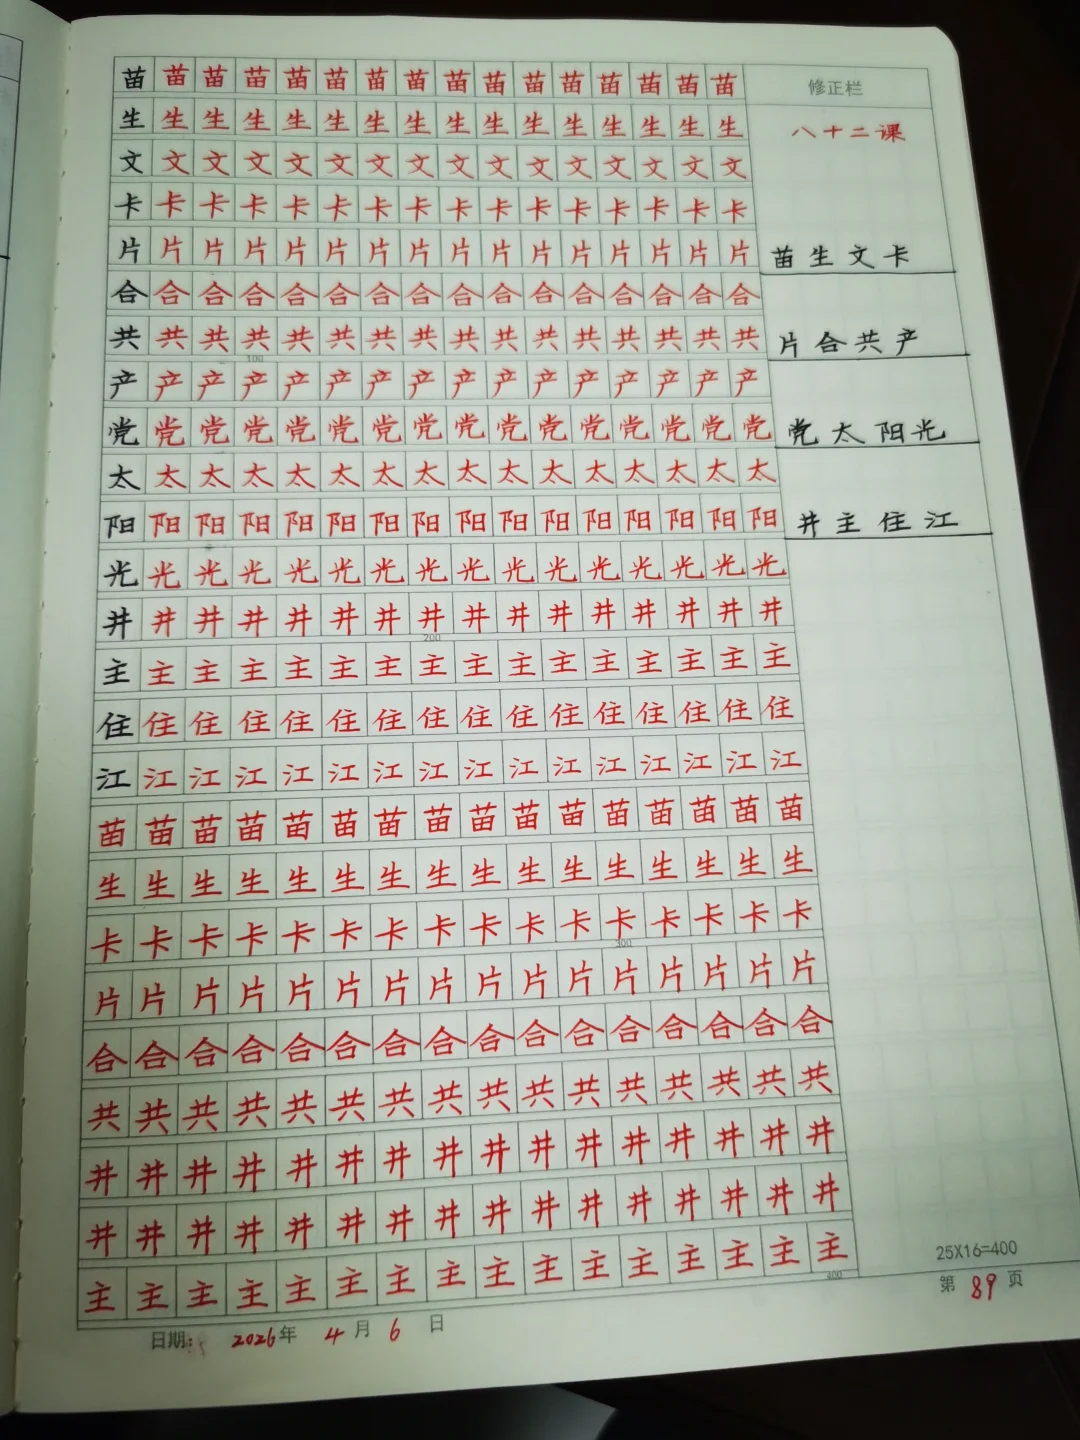 苗苗苗苗苗苗苗苗苗苗苗苗苗苗苗苗
生生生生生生生生生生生生生生生生
文文文文文文文文文文文文文文文文
卡卡卡卡卡卡卡卡卡卡卡卡卡卡卡卡
片片片片片片片片片片片片片片片片
合合合合合合合合合合合合合合合合
共共共共共共共共共共共共共共共共
100
产产产产产产产产产产产产产产产产
党党党党党党党党党党党党党党党党
太太太太太太太太太太太太太太太太
阳阳阳阳阳阳阳阳阳阳阳阳阳阳阳阳
光光光光光光光光光光光光光光光光
井井井井井井井井井井井井井井井井
200
主主主主主主主主主主主主主主主主
住住住住住住住住住住住住住住住住
江江江江江江江江江江江江江江江江
苗苗苗苗苗苗苗苗苗苗苗苗苗苗苗苗
生生生生生生生生生生生生生生生生
卡卡卡卡卡卡卡卡卡卡卡卡卡卡卡卡
300
片片片片片片片片片片片片片片片片
合合合合合合合合合合合合合合合合
共共共共共共共共共共共共共共共共
井井井井井井井井井井井井井井井井
井井井井井井井井井井井井井井井井
主主主主主主主主主主主主主主主主
400
修正栏
八十二课
苗生文卡
片合共产
党太阳光
井主住江
25X16=400
第89页
日期: 2026年4月6日